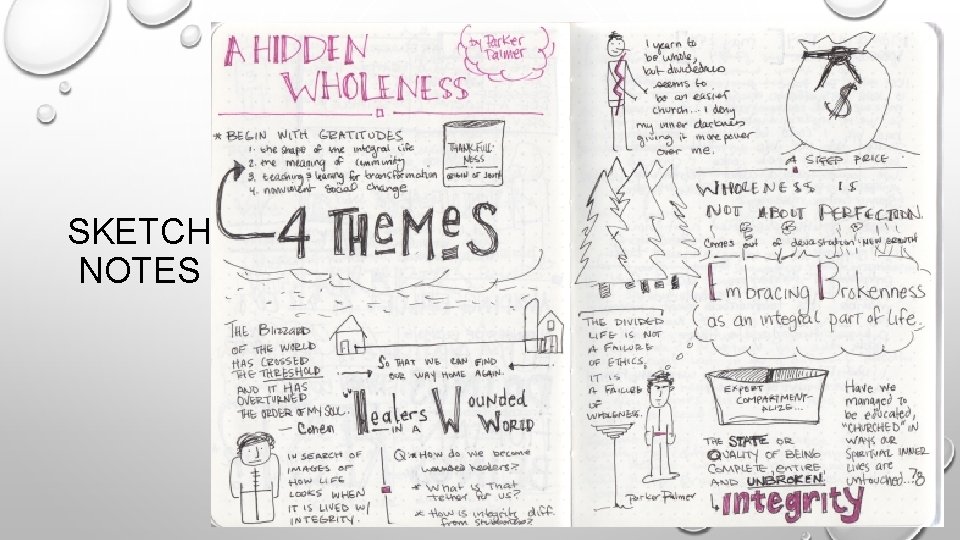 SKETCH
NOTES
A HIDDEN
WHOLENESS
by Parker
Palmer
* BEGIN WITH GRATITUDES
1. the shape of the integral life
2. the meaning of community
3. teaching & learning for transformation
4. nonviolent social change
THANKFUL-
NESS
4 THEMES
THE BLIZZARD
OF THE WORLD
HAS CROSSED
THE THRESHOLD
AND IT HAS
OVERTURNED
THE ORDER OF MY SOUL.
- Cohen
SO THAT WE CAN FIND
OUR WAY HOME AGAIN.
"WOUNDED
HEALERS
IN A
WORLD
IN SEARCH OF
IMAGES OF
HOW LIFE
LOOKS WHEN
IT IS LIVED W/
INTEGRITY.
Q * HOW do we become
wounded healers?
* What is that
tether for us?
* How is integrity diff.
from
I yearn to
be whole,
but dividedness
seems to
be an easier
church... I deny
my inner darkness
giving it more power
over me.
$
A STEEP PRICE
WHOLENESS IS
NOT ABOUT PERFECTION.
Comes out of devastation: NEW GROWTH
Embracing Brokenness
as an integral part of life.
THE DIVIDED
LIFE IS NOT
A FAILURE
OF ETHICS.
IT IS
A FAILURE
OF
WHOLENESS.
Parker Palmer
EXPERT
COMPARTMENT-
ALIZE...
Have we
managed to
be educated,
"CHURCHED" IN
WAYS OUR
SPIRITUAL INNER
LIVES are
untouched...?
THE STATE OR
QUALITY OF BEING
COMPLETE, ENTIRE,
AND UNBROKEN.
integrity